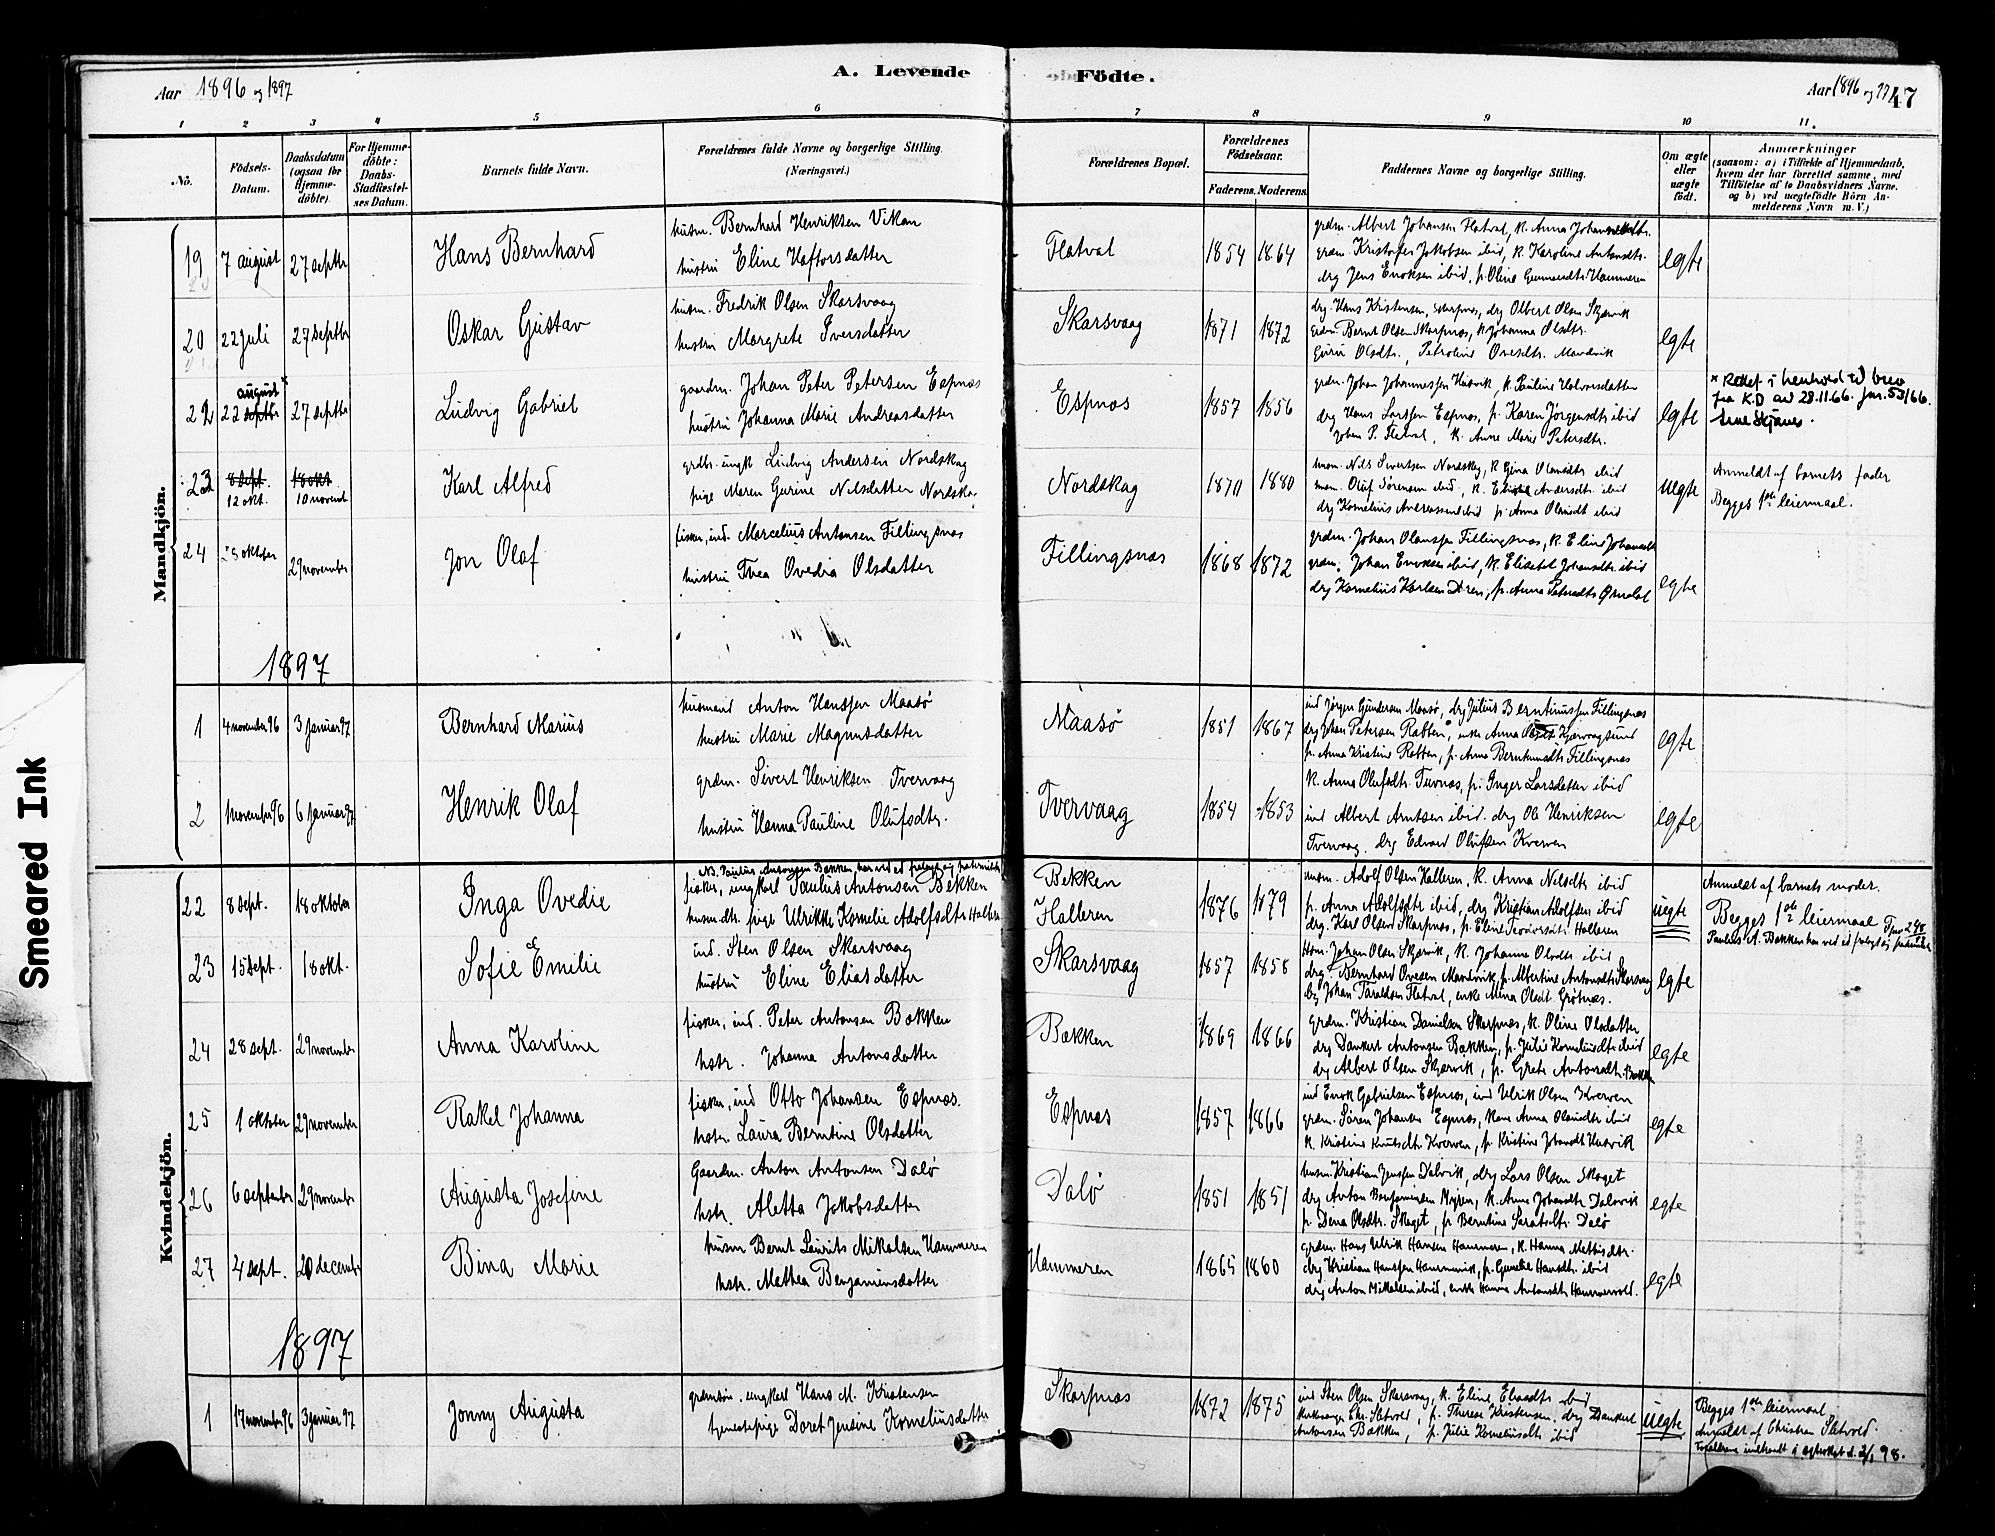 A. Levende Födte.
Aar 1896 og 1897
Aar 1896 og 97
47
1 2 3 4 5 6 7 8 9 10 11.
No.
Födsels-Datum.
Daabsdatum (ogsaa for Hjemme-döbte).
For Hjemme-döbte: Daabs-Stadfæstel-ses Datum.
Barnets fulde Navn.
Forældrenes fulde Navne og borgerlige Stilling. (Næringsvei.)
Forældrenes Bopæl.
Forældrenes Födselsaar.
Faderens. Moderens.
Faddernes Navne og borgerlige Stilling.
Om ægte eller uægte födt.
Anmærkninger
(saasom: a) i Tilfælde af Hjemmedaab, hvem der har forrettet samme, med Tilföielse af to Daabsvidners Navne, og b) ved uægtefödte Börn An-melderens Navn m. V.)
Mandkjön.
19 7 august 27 septbr Hans Bernhard
husm. Bernhard Henriksen Vikan
hustru Eline Haftorsdatter
Flatval 1854 1864
grdm. Albert Johansen Flatval, k. Anna
grdm. Kristofer Jakobsen ibid, k. Karoline Antonsdtr.
drg Jens Enoksen ibid, p. Oline Hammeren
egte
20 22 juli 27 septbr Oskar Gustav
husm. Fredrik Olsen Skarsvaag
hustru Margrete Iversdatter
Skarsvaag 1871 1872
drg. Hans Kristensen, Skarpnes, drg Albert Olsen Skjærvik
grdm. Bernt Olsen Skarpnæs, k Johanna Olsdtr.
Guru Olsdtr., Petroline Ovesdtr. Mandvik
egte
22 22 septbr august 27 septbr Ludvig Gabriel
gaardm. Johan Peter Petersen Espnæs
hustru Johanna Marie Andreasdatter
Espnæs 1857 1856
grdm. Johan Johannessen Husvik, k. Pauline
drg Hans Larssen Espnæs, p. Karen Jørgensdtr ibid
Johan P. Flatval, k. Anne Marie Petersdtr.
egte
x Rettet i henhold til brev
fra K.D av 28.11.66. jnr. 53/66.
23 8 sept. 12 okt. 18 okt 10 novemb Karl Alfred
grdbr. ungk Ludvig Andersen Nordskag
pige Maren Gurine Nilsdatter Nordskag
Nordskag 1870 1880
husm. Nils Sivertsen Nordskag, k Gina Olausdtr ibid
husm. Oluf Sørensen ibid, k. Andersdtr ibid
drg Kornelius Andreassen ibid p. Anna ibid
uegte
Anmeldt af barnets fader
Begges 1ste leiermaal.
24 25 oktober 29 november Jon Olaf
fisker, ind. Marcelius Antonsen Fillingsnæs
hustru Thea Ovedia Olsdatter
Fillingsnæs 1868 1872
grdm. Johan Olaussen Fillingsnæs, k. Elind
grdm. Johan Enoksen ibid, k. Elisabet Johansdtr. ibid
drg Kornelius Karlsen, p. Anna
egte
1897
1 4 november 96 3 Januar 97 Bernhard Marius
husmand Anton Hanssen Maasø
hustru Marie Magnusdatter
Maasø 1851 1867
ind Jørgen Gundersen Maasø, drg Julius Berntinussen Fillingsnæs
drg Johan Petersen Rabben, enke Anna Kjervaagsund
p. Anna Kristine Rabben, p. Anna Berntinusdtr Fillingsnæs
egte
2 1 november 96 6 Januar 97 Henrik Olaf
grdm. Sivert Henriksen Tvervaag
hustru Hanna Pauline Olufsdtr.
Tvervaag 1854 1853
k. Anna Olufsdtr., p. Inger Larsdatter ibid
ind Albert Arntsen ibid. drg Ole Henriksen
Tvervaag, drg Edvard Olufsen Kverven
egte
Kvindekjön.
22 8 sept. 18 oktober Inga Ovedie
fisker, ungkarl Paulus Antonsen Bekken
husm.dtr. pige Ulrikke Kornelie Adolfsdtr Halleren
Bekken
Halleren 1876 1879
husm. Adolf Olsen Halleren, k. Anna Nilsdtr ibid
p. Anna Adolfsdtr ibid, drg Kristian Adolfsen ibid
drg. Karl Olsen Skarpnæs, p. Eline Halleren
uegte
Anmeldt af barnets moder.
Begges 1ste leiermaal
23 15 sept. 18 okt. Sofie Emilie
ind. Sten Olsen Skarsvaag
hustru Eline Eliasdatter
Skarsvaag 1857 1858
Johan Olsen Skjærvik, k. Johanna Olsdtr ibid
drg Bernhard Ovesen Mandvik, p. Albertine Antonsdtr Skarsvaag
drg Johan Taraldsen Flatval, enke Mina Olsdt. Grøtnæs.
egte
24 28 sept. 29 november Anna Karoline
fisker, ind. Peter Antonsen Bækken
hstr. Johanna Antonsdatter
Bækken 1869 1866
grdm. Kristian Danielsen Skarpnæs, k. Oline Olsdatter
drg Dankert Antonsen Bækken, p. Julie Korneliusdtr ibid
drg Albert Olsen Skjærvik, p. Grete Antonsdtr. Bækken
egte
25 1 oktober 29 november Rakel Johanna
fisker, ind Otto Johansen Espnæs.
hstr. Laura Berntine Olsdatter
Espnæs 1857 1866
ind Enok Gabrielsen Espnæs, ind Ulrik Olsen Kverven
grdm. Søren Johansen Espnæs, kone Anna ibid
k. Kristine Knutsdtr. Kverven, p. Kristine Husvik
egte
26 6 september 29 november Augusta Josefine
Gaardm. Anton Antonsen Dalø
hstr. Aletta Jakobsdatter
Dalø 1851 1851
husm Kristian Jenssen Dalvik, drg Lars Olsen Skaget
drg Anton Benjaminsen Myren, k. Anne Dalvik
p. Dena Olsdtr. Skaget, p. Berntine Dalø
egte
27 4 sept. 20 decemb Bina Marie
husm Bernt Laurits Mikalsen Hammeren
hstr. Mathea Benjaminsdatter
Hammeren 1865 1860
grdm. Hans Ulrik Hansen Hammeren, k. Hanna Mathisdtr.
drg Kristian Hanssen, p. Hansdtr. ibid
drg Anton Mikalsen ibid, enke Hanna Antonsdtr Hammervold.
egte
1897
1 17 november 96 3 januar 97 Jonny Augusta
ungkarl Hans M. Kristensen
tjenestepige Doret Jensine Korneliusdatter
Skarpnæs 1872 1875
ind Sten Olsen Skarsvaag, k. Eline Eliasdtr ibid
Chr. Sletvold, p. Therese Kristensen. drg Dankert
Antonsen Bækken, p. Julie Korneliusdtr ibid
uegte
Begges 1ste leiermaal
Anmeldt af Christian Sletvold.
Smeared Ink